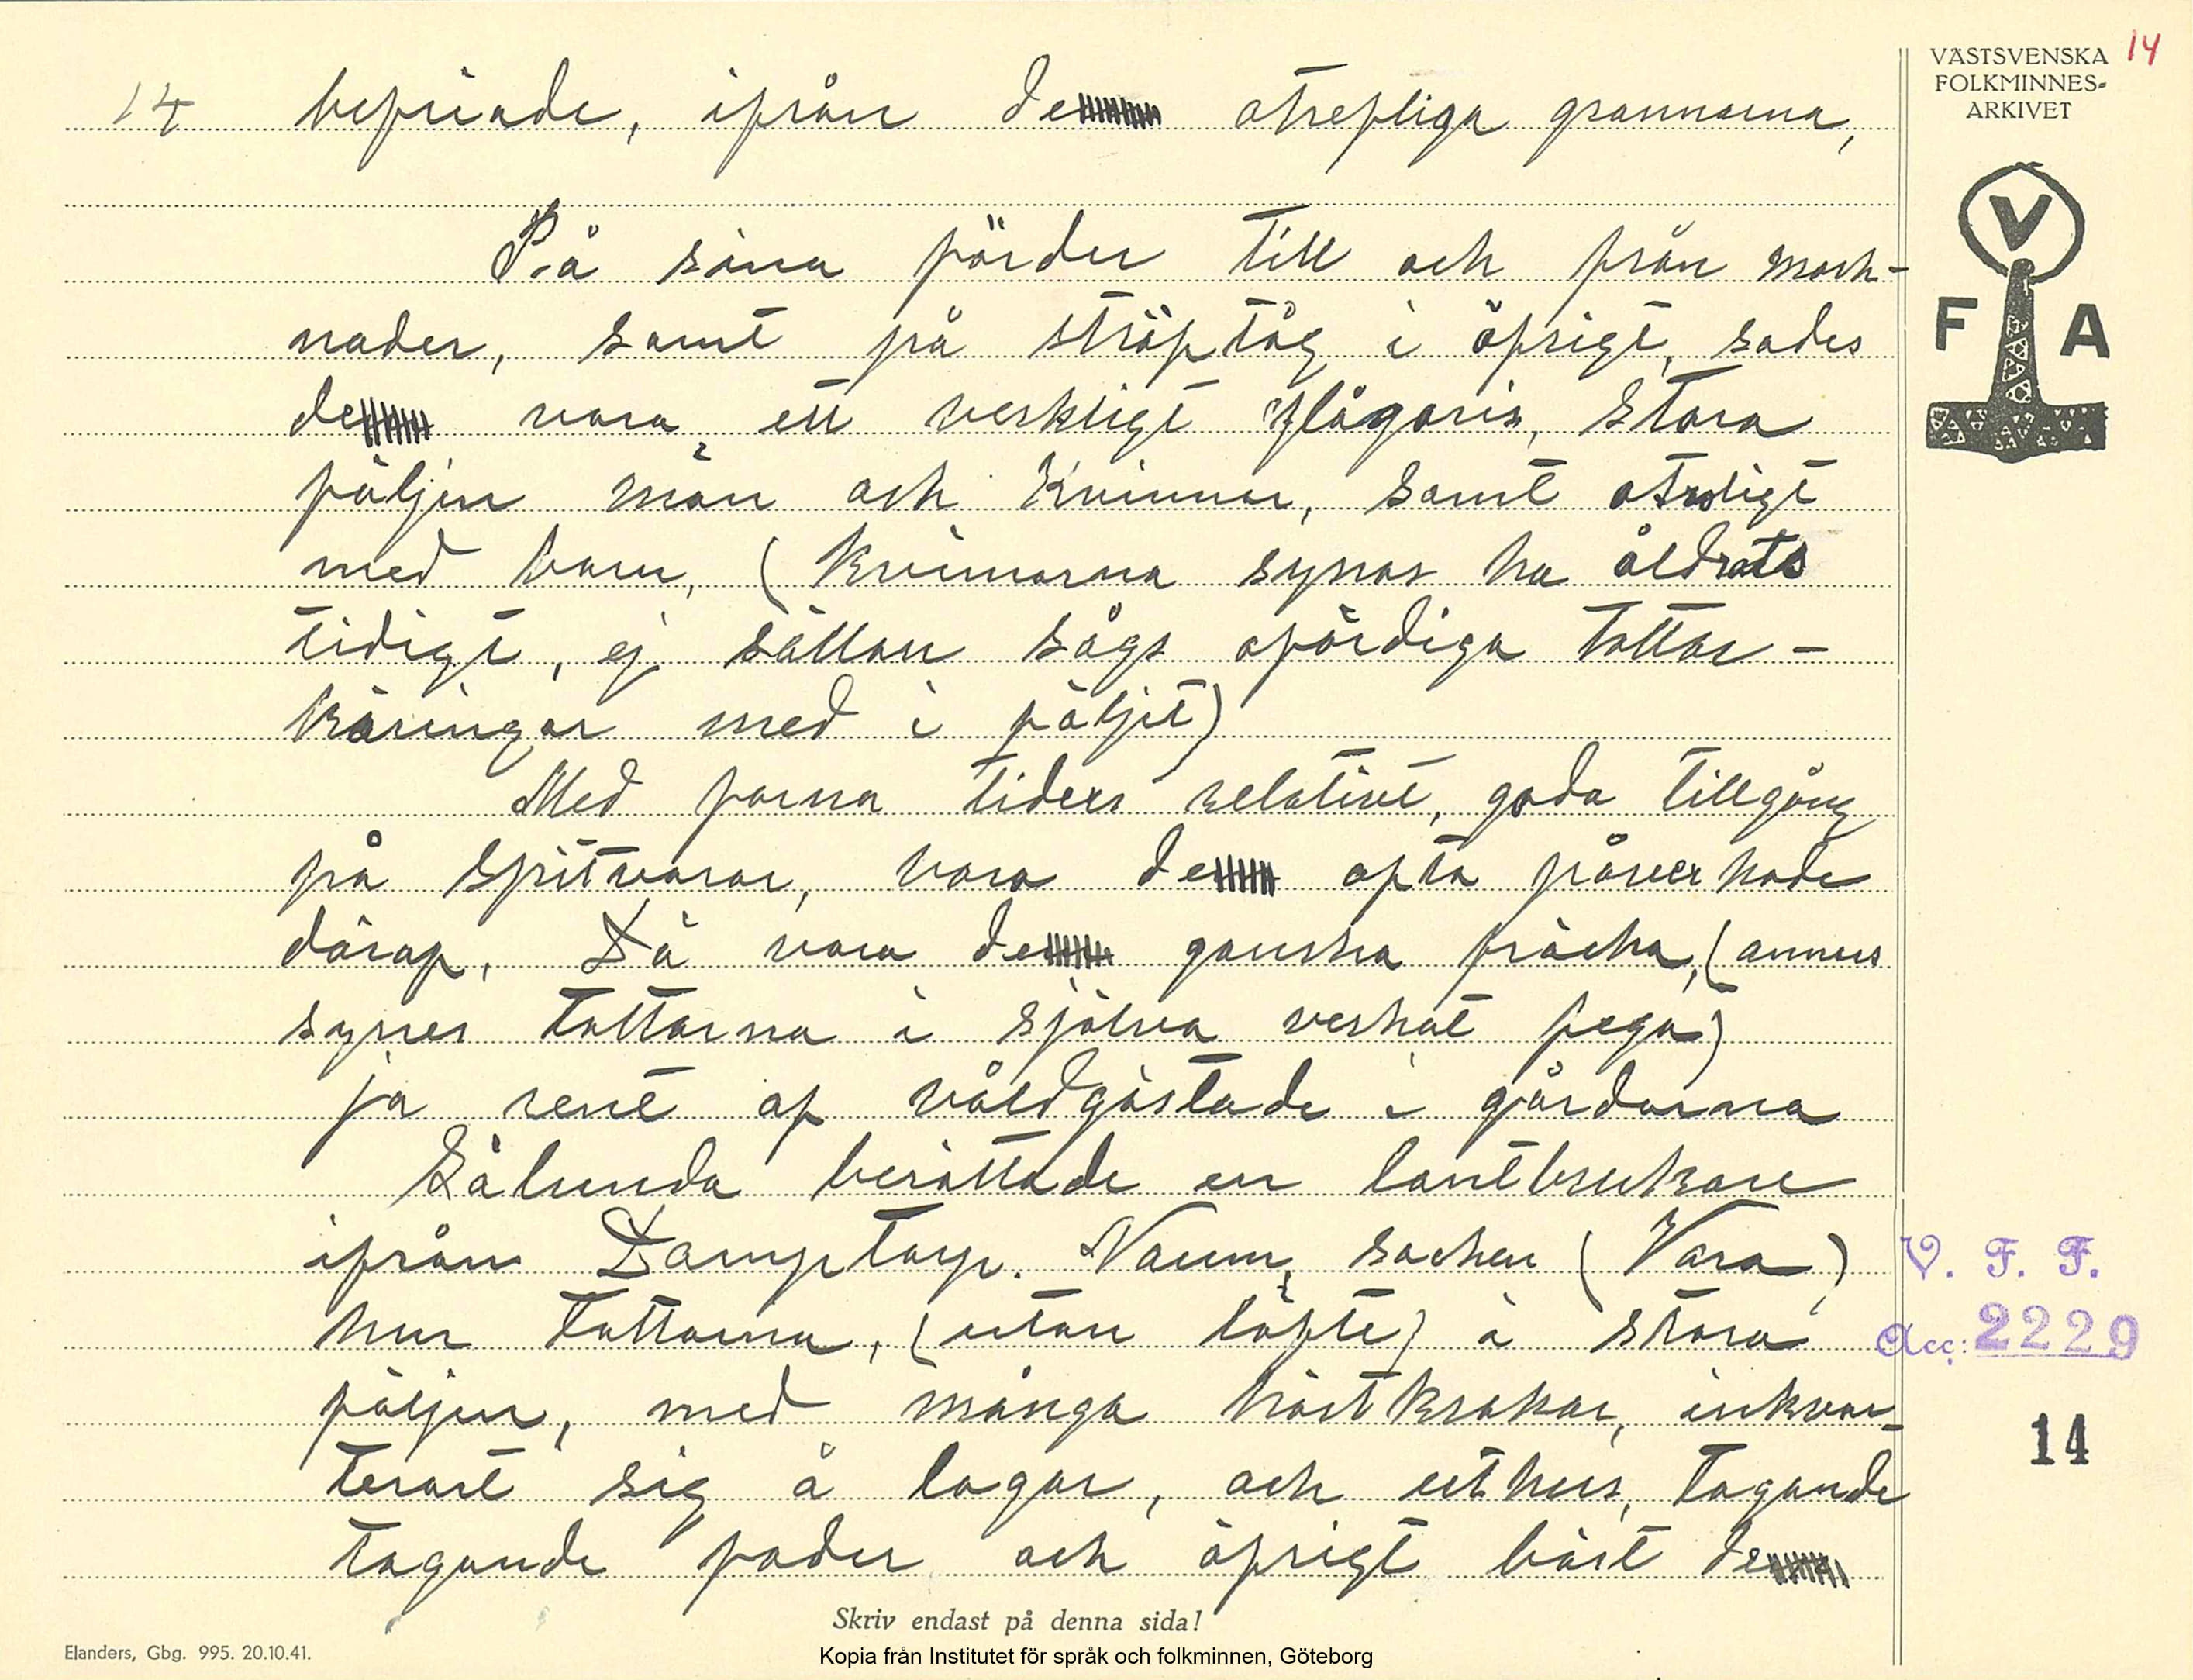 14
VÄSTSVENSKA
FOLKMINNES-
ARKIVET
14 befriade, ifrån de otrefliga grannarna,
På sina färder till och från mark-
nader, samt på ströftåg i öfrigt, sades
de vara, ett verkligt plågoris, stora
följen män och Kvinnor, samt otroligt
med barn, (Kvinnorna synas ha åldrats
tidigt, ej sällan sågs ofärdiga tattar-
käringar med i följet)
Med forna tiders relativt, goda tillgång
på spritvaror, voro de ofta påverkade
däraf. Då voro de ganska fräcka, (annars
synes tattarna i själva verket fega)
ja rent af våldgästade i gårdarna
Sålunda berättade en lantbrukare
ifrån Damptorp. Naum, socken (Vara)
hur tattarna, (utan löfte) i stora
följen, med många hästkrakar, inkvar-
terart sig å logar, och uthus, tagande
tagande foder och öfrigt bäst de
V
F A
V. F. F.
Acc: 2229
14
Skriv endast på denna sida!
Elanders, Gbg. 995. 20.10.41.
Kopia från Institutet för språk och folkminnen, Göteborg